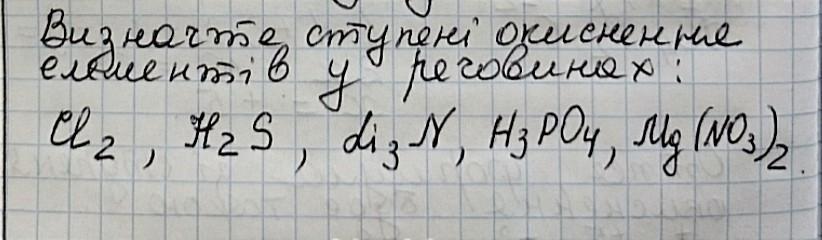 Визначте ступені окиснення
елементів у речовинах:
Cl₂, H₂S, Li₃N, H₃PO₄, Mg(NO₃)₂.